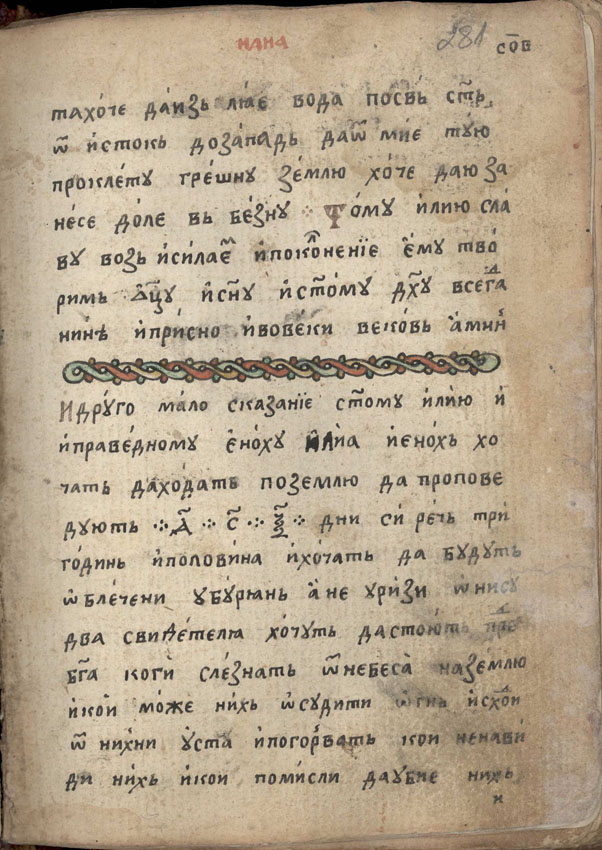 илиа
281
сов
тахо́че да́изь лїа́є вода посвь ст҃ь
ѿ и́стокь доза́падь даѿ мие ту́ю
проклє́ту грє́шну зє́млю хо́че даюза
нє́сє до́лє вь бє́зну то́му илию сла
ву возь и́сила є и́поклонє́нїє є́му тво́
римь ѡ҃цу и́сн҃у и́ст҃ому дх҃у всєгда
нинѣ и́при́сно и́вовєки вєковь а́минь
И дру́го ма́ло сказа́нїє ст҃ому и́лию и́
и́правє́дному є́но́ху и́лиа и́єно́хь хо
чать да́хо́дать позємлю да пропове
дують а҃ с҃ ѯ҃ дни си рє́чь три́
го́динь и́полови́на и́хо́чать да бу́дуть
ѡблє́чени убу́рꙗнь а́не у́ри́зи ѡнису
два сви́детелꙗ хо́чуть дастою́ть прє
бг҃а коги́ слє́знать ѿнєбєса̀ назє́млю
и́кои́ мо́же ни́хь ѡсуди́ти ѡгнь и́схо́ди
ѿ ни́хни у́ста и́погорвать кои нєнави́
ди ни́хь и́кои поми́сли даубиє нихь
и